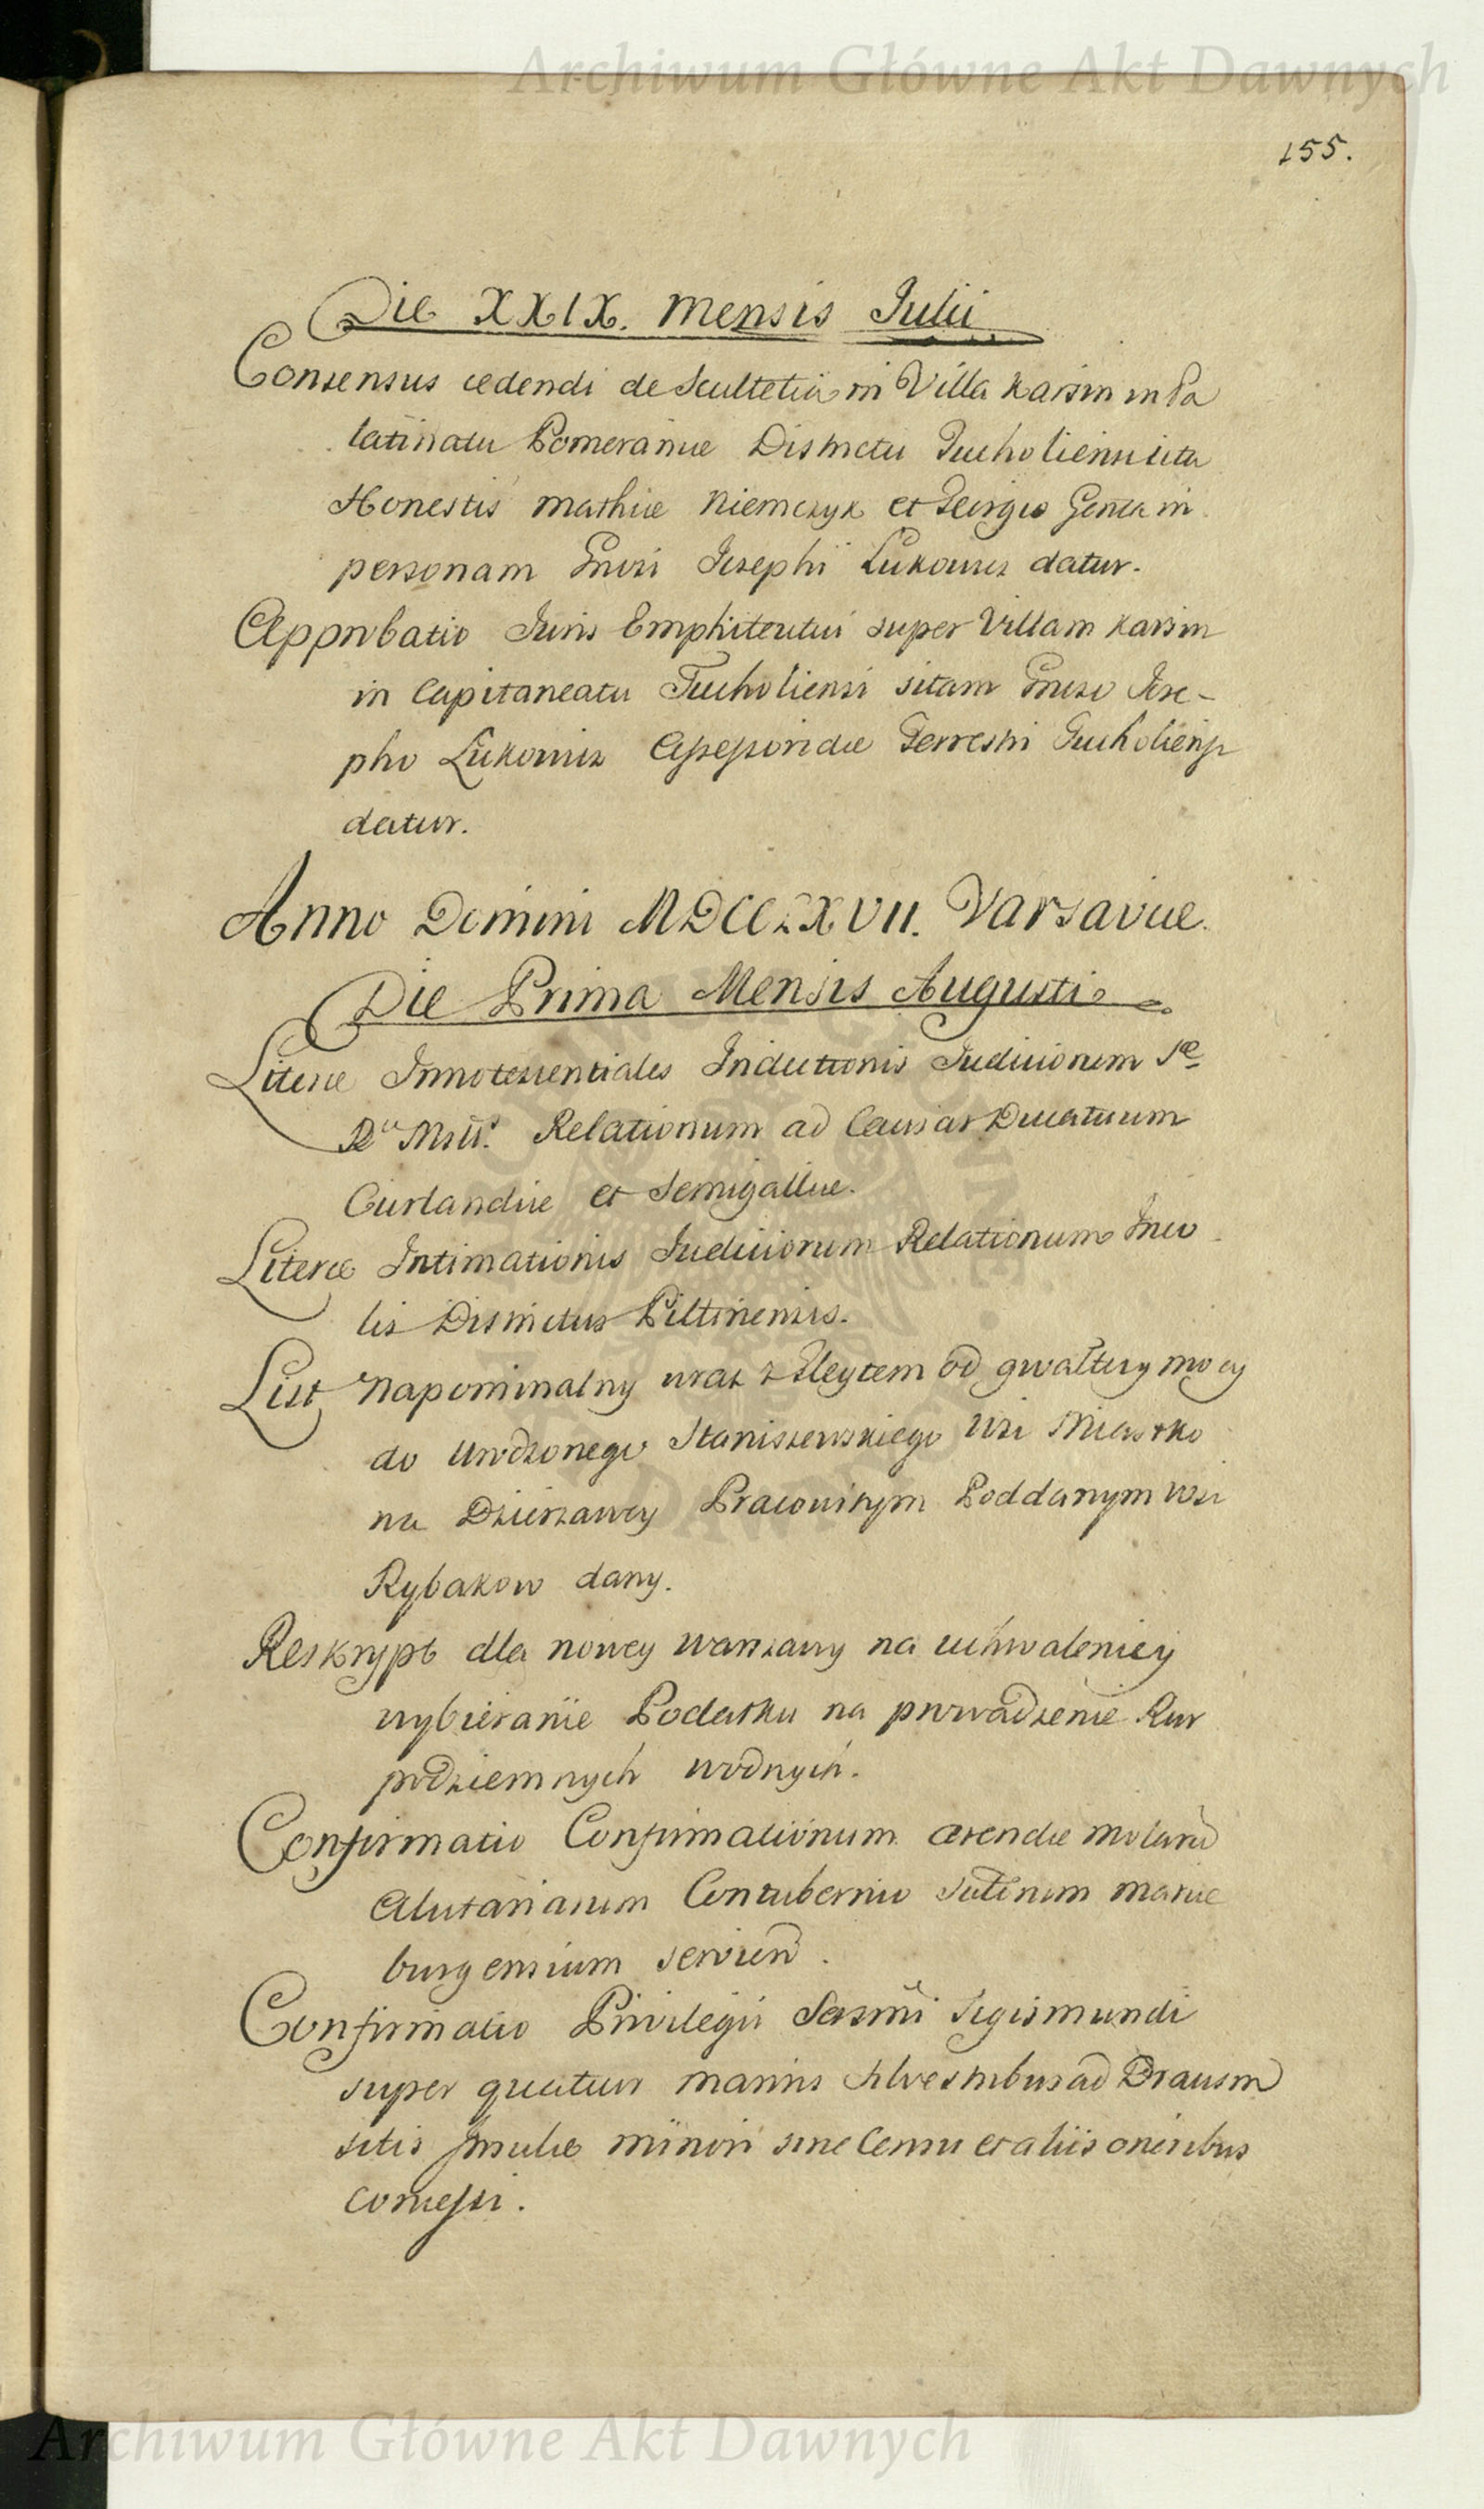 Archiwum Główne Akt Dawnych
155.
Die XXIX. Mensis Julii
Consensus cedendi de Scultetia in Villa Karsin in Pa
latinatu Pomeraniæ Districtu Tucholiensi sita
Honestis Mathiæ Niemczyk et Georgio Genta in
personam Gnosi Josephi Łukowicz datur.
Approbatio Juris Emphiteutici super Villam Karsin
in Capitaneatu Tucholiensi sitam Gnoso Jose-
pho Łukowicz Assessori Terrestri Tucholiensi
datur.
Anno Domini MDCCLXVII. Varsaviæ.
Die Prima Mensis Augusti
Literæ Innotescentiales Indictionis Judiciorum Sæ
Ræ Mttis. Relationum ad Causas Ducatuum
Curlandiæ et Semigalliæ.
Literæ Intimationis Judiciorum Relationum Inco
lis Districtus Piltinensis.
List Napominalny wraz z Gleytem od gwałtu y mocy
do Urodzonego Staniszewskiego Wsi Miastko
na Dzierżawcy Pracowitym Poddanym wsi
Rybakow dany.
Reskrypt dla nowey Warszawy na uchwalenie y
wybieranie Podatku na prowadzenie Rur
podziemnych wodnych.
Confirmatio Confirmationum arendæ molend
Alutariarum Contubernio Sutorum Mariæ
burgensium servien.
Confirmatio Privilegii Sersmi Sigismundi
super quatuor mansis silvestribus ad Drausin
sitis Insulæ minori sine Censu et aliis oneribus
Concessi.
Archiwum Główne Akt Dawnych